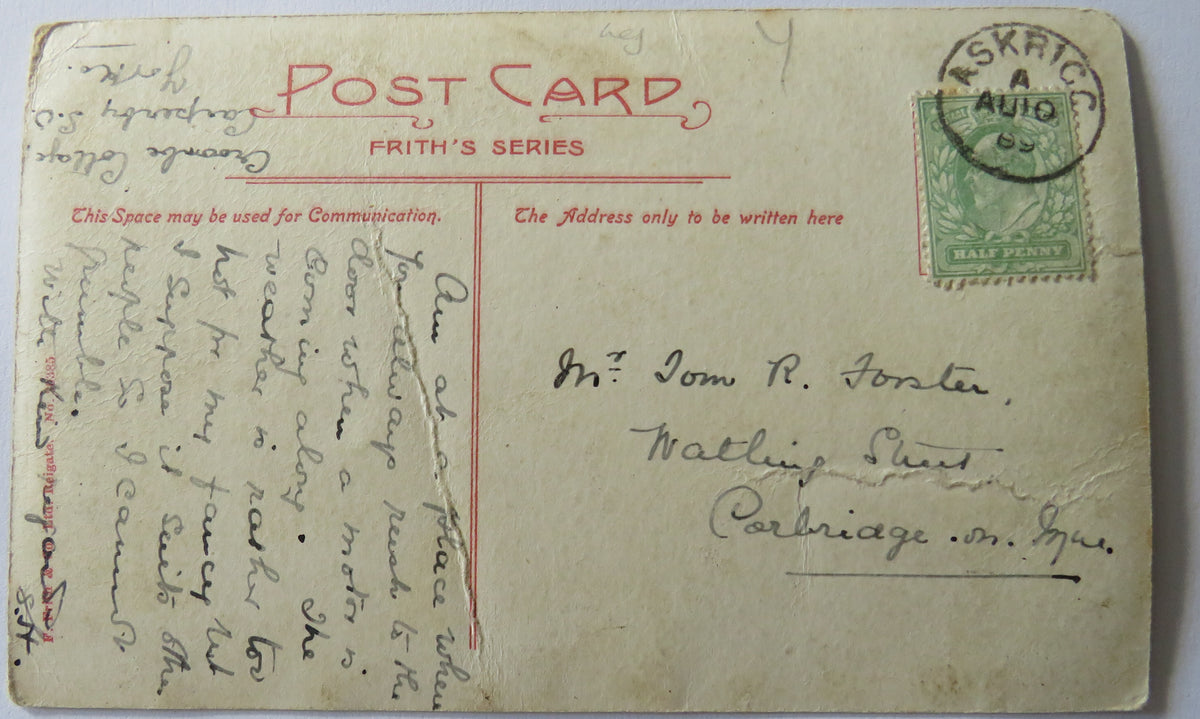 POST CARD
FRITH'S SERIES
This Space may be used for Communication.
The Address only to be written here
ASKRIGG
A
AU10
09
HALF PENNY
Croombe Cottage.
Carperby S.O.
Yorks.
Am at a place where
you always rush to the
door when a motor is
coming along. The
weather is rather too
hot for my fancy but
I suppose it suits other
people so I cannot
grumble.
With kind regards
S.H.
Mr. Tom R. Forster,
Watling Street
Corbridge-on-Tyne.
Ltd. Reigate. No.